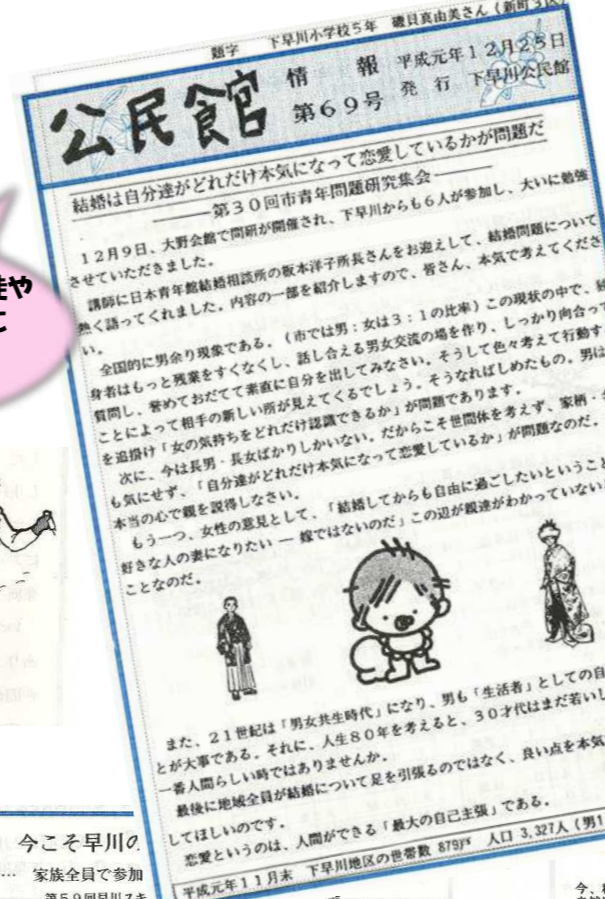 題字 下早川小学校5年 磯貝真由美さん(新町3区)
公民館
情 報
第69号
平成元年12月25日
発 行 下早川公民館
結婚は自分達がどれだけ本気になって恋愛しているかが問題だ
――第30回市青年問題研究集会――
12月9日、大野会館で問研が開催され、下早川からも6人が参加し、大いに勉強
させていただきました。
講師に日本青年館結婚相談所の板本洋子所長さんをお迎えして、結婚問題について
熱く語ってくれました。内容の一部を紹介しますので、皆さん、本気で考えてくださ
い。
全国的に男余り現象である。(市では男:女は3:1の比率)この現状の中で、
身者はもっと残業をすくなくし、話し合える男女交流の場を作り、しっかり向合って
質問し、誉めておだてて素直に自分を出してみなさい。そうして色々考えて行動す
ことによって相手の新しい所が見えてくるでしょう。そうなればしめたもの。男は
を追掛け「女の気持ちをどれだけ認識できるか」が問題であります。
次に、今は長男・長女ばかりしかいない。だからこそ世間体を考えず、家柄・
も気にせず、「自分達がどれだけ本気になって恋愛しているか」が問題なのだ。
本当の心で親を説得しなさい。
もう一つ、女性の意見として、「結婚してからも自由に過ごしたいということ
好きな人の妻になりたい ― 嫁ではないのだ」この辺が親達がわかっていない
ことなのだ。
また、21世紀は「男女共生時代」になり、男も「生活者」としての自
とが大事である。それに、人生80年を考えると、30才代はまだ若いし
一番人間らしい時ではありませんか。
最後に地域全員が結婚について足を引張るのではなく、良い点を本気
してほしいのです。
恋愛というのは、人間ができる「最大の自己主張」である。
平成元年11月末 下早川地区の世帯数 879戸 人口 3,327人(男1
今こそ早川の
… 家族全員で参加
第59回早川スキ
や
に
今、